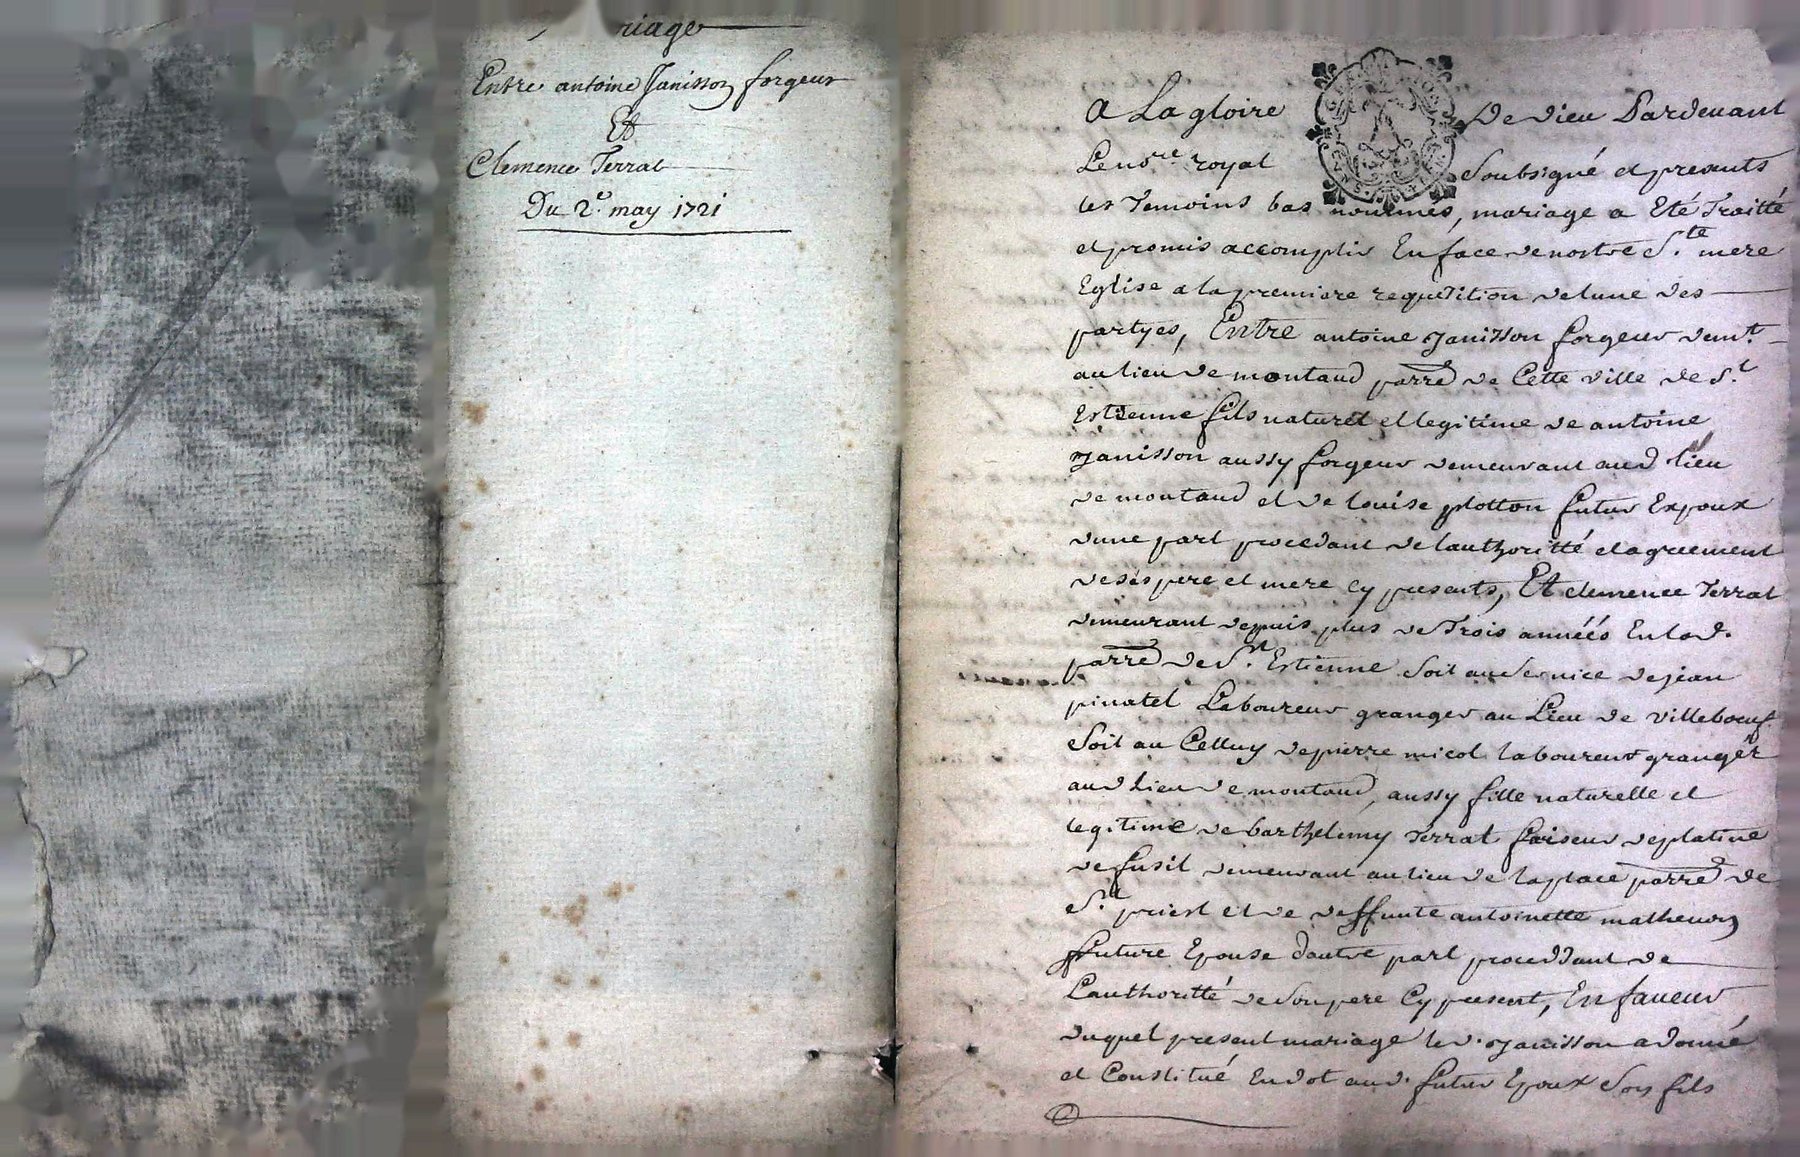 riage
Entre antoine Janisson forgeur
Et
Clemence Terrat
Du 2.e may 1721
A La gloire De Dieu Pardevant
Le no.re royal Soubsigné et presents
les Temoins bas nommés, mariage a Eté Traitté
et promis accomplir En face de nostre S.te mere
Eglise a la premiere requisition de lune des
partyes, Entre antoine Janisson forgeur dem.t
au lieu de montaud parre de Cette ville de S.t
Estienne fils naturel et legitime de antoine
Janisson aussy forgeur demeurant aud lieu
de montaud et de louise plotton futur Expoux
dune part procedant de lauthoritté et agreement
de ses pere et mere cy presents, Et clemence Terrat
demeurant depuis plus de Trois annéés En lad.
parre de S.t Estienne Soit au Service de jean
pinatel Laboureur granger au Lieu de villeboeuf
Soit au Celluy de pierre micol laboureur granger
aud Lieu de montaud, aussy fille naturelle et
legitime de barthelemy Terrat faiseur de platine
de fusil demeurant au lieu de la place parre de
S.t priest et de deffunte antoinette matheuon
future Epouse dautre part proceddant de
Lauthoritté de Son pere Cy present, En faveur
duquel present mariage led. Janisson a donné
et Constitué En dot aud. futur Epoux Son fils